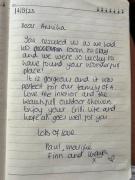 14/8/23
Dear Annika
You rescued us as we had
no room to stay
and we were so lucky to
have found your wonderful
place!
It is gorgeous and it was
perfect for our family of 4
Love the interior and the
beautiful outdoor shower.
Enjoy your life and
hope all goes well for you
Lots of love
Paul, 
Finn and